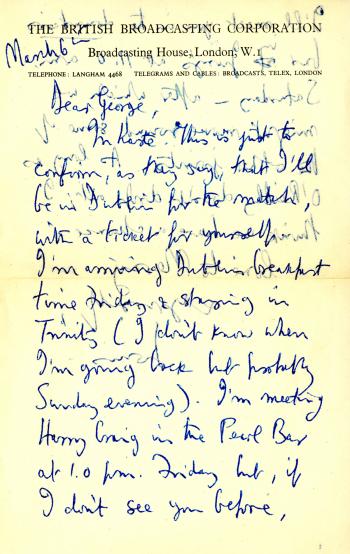 THE BRITISH BROADCASTING CORPORATION
Broadcasting House, London, W.1
TELEPHONE: LANGHAM 4468 TELEGRAMS AND CABLES: BROADCASTS, TELEX, LONDON
March 6th
Dear George,
In haste. This is just to
confirm, as they say, that I'll
be in Dublin for the match,
with a ticket for yourself.
I'm arriving Dublin breakfast
time Friday & staying in
Trinity (I don't know when
I'm going back but probably
Sunday evening). I'm meeting
Harry Craig in the Pearl Bar
at 1.0 p.m. Friday but, if
I don't see you before,